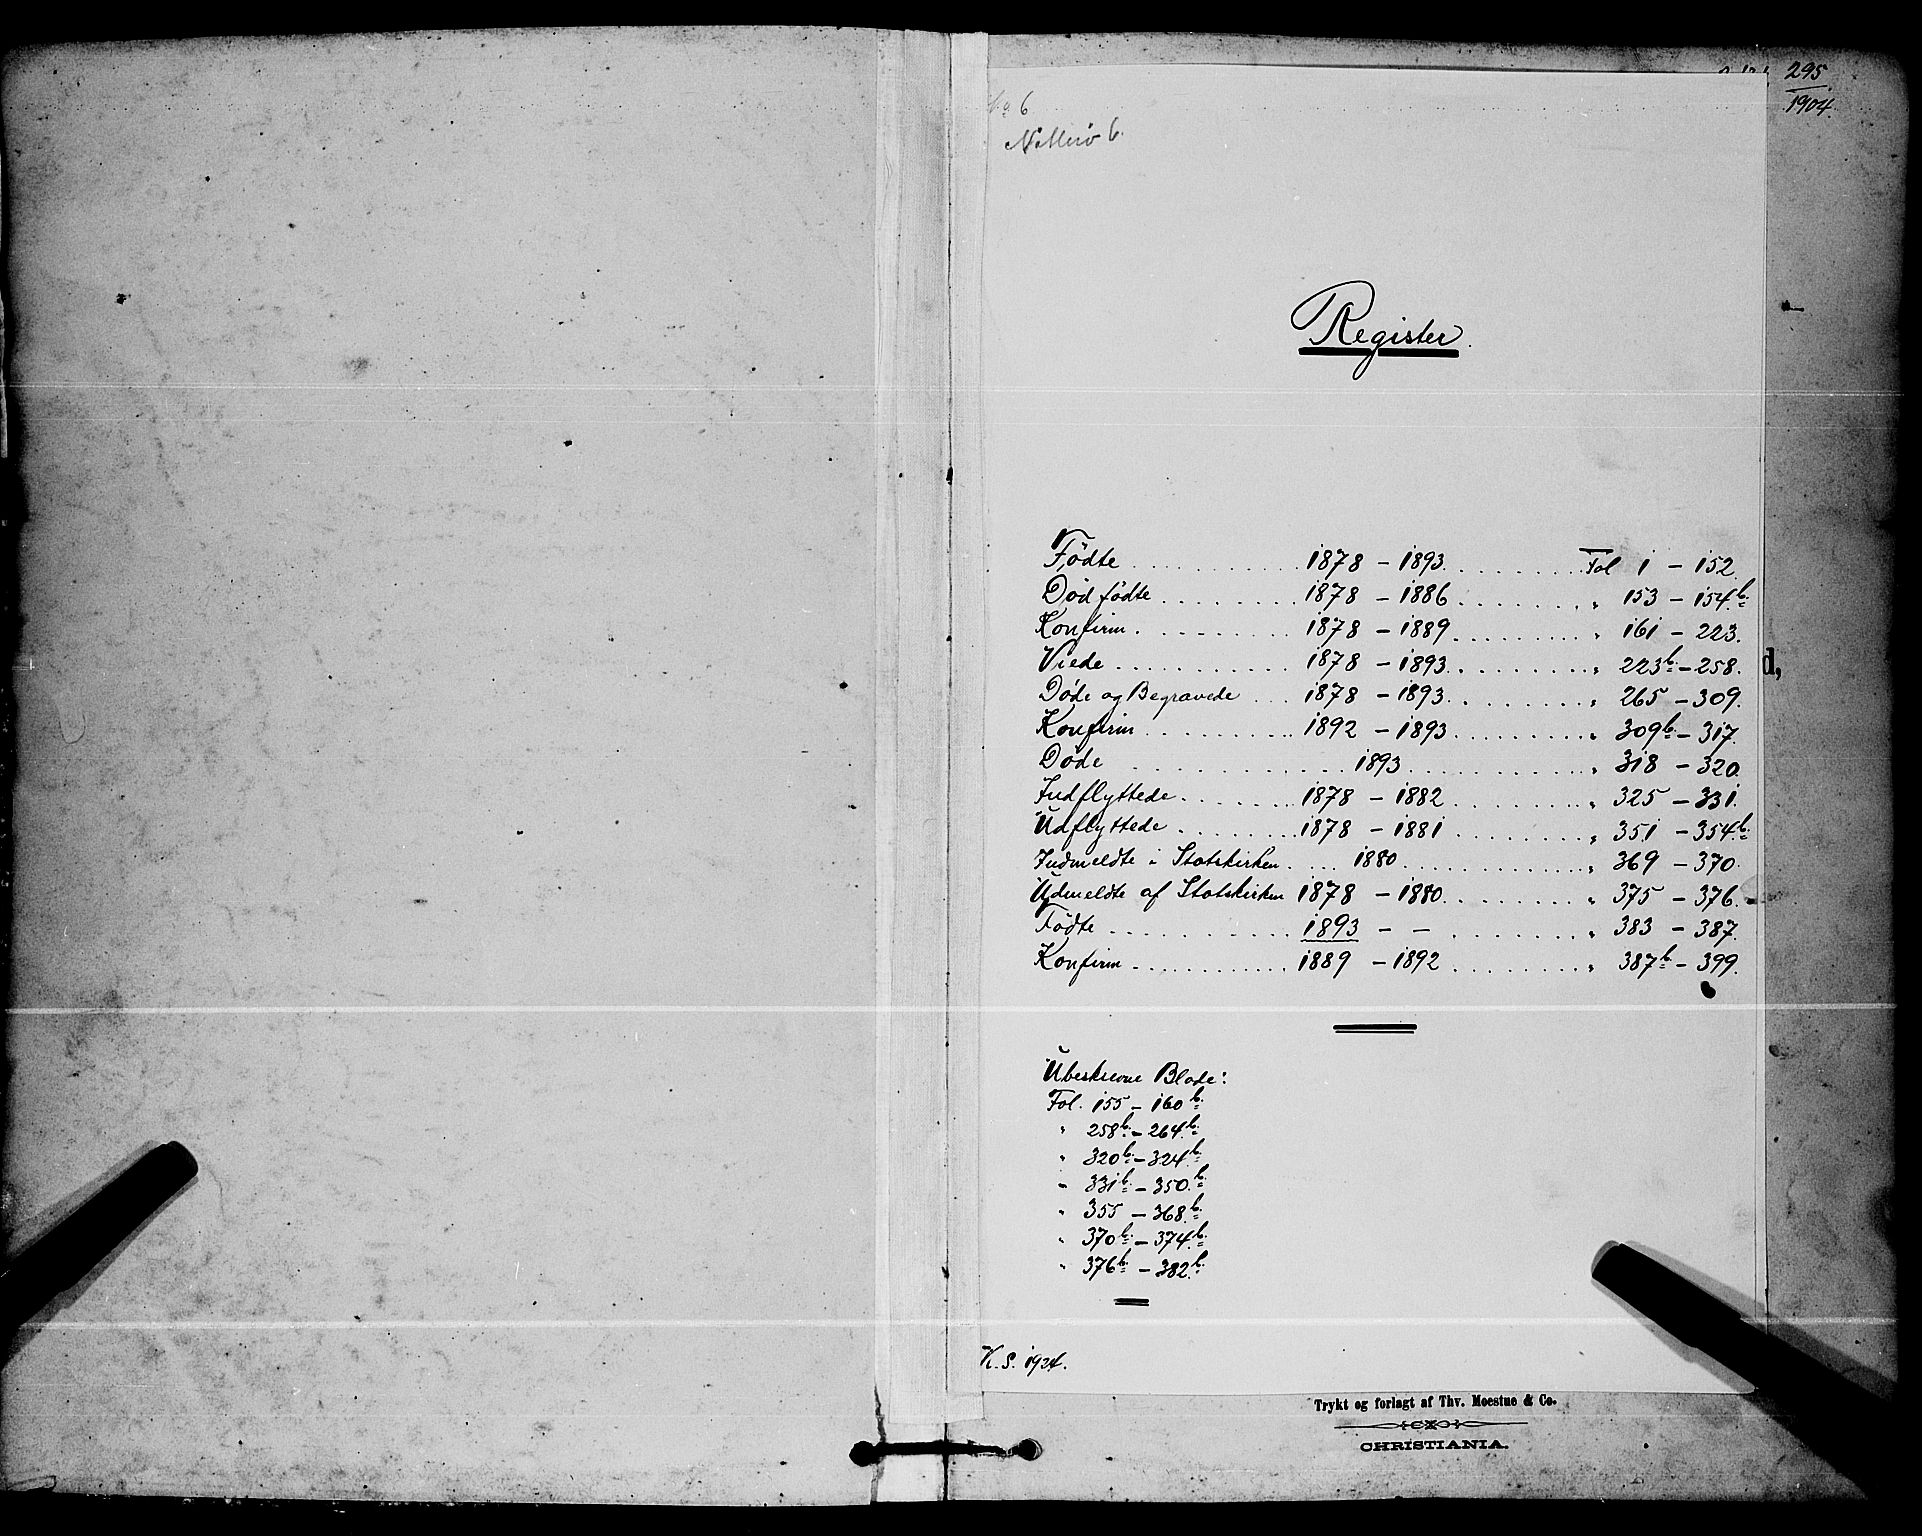 295
1904.
No 6
Nøtterø 6.
Register.
Fødte . . . . . . 1878 – 1893 . . . . . . Fol 1 – 152.
Dødfødte . . . . . . 1878 – 1886 . . . . . . " 153 – 154b.
Konfirm. . . . . . . 1878 – 1889 . . . . . . " 161 – 223.
Viede . . . . . . 1878 – 1893 . . . . . . " 223b. – 258.
Døde og Begravede . . . 1878 – 1893 . . . . . . " 265 – 309.
Konfirm . . . . . . 1892 – 1893 . . . . . . " 309b. – 317.
Døde . . . . . . 1893 . . . . . . " 318 – 320.
Indflyttede . . . . . . 1878 – 1882 . . . . . . " 325 – 331.
Udflyttede . . . . . . 1878 – 1881 . . . . . . " 351 – 354b.
Indmeldte i Statskirken . . . . 1880 . . . . . . " 369 – 370.
Udmeldte af Statskirken 1878 – 1880 . . . . . . " 375 – 376.
Fødte . . . . . . 1893 – – . . . . . . " 383 – 387.
Konfirm . . . . . . 1889 – 1892 . . . . . . " 387b. – 399.
d,
Ubeskrevne Blade:
Fol. 155 – 160b.
" 258b. – 264b.
" 320b. – 324b.
" 331b. – 350b.
" 355 – 368b.
" 370b. – 374b.
" 376b. – 382b.
K. S. 1924.
Trykt og forlagt af Thv. Moestue & Co.
CHRISTIANIA.